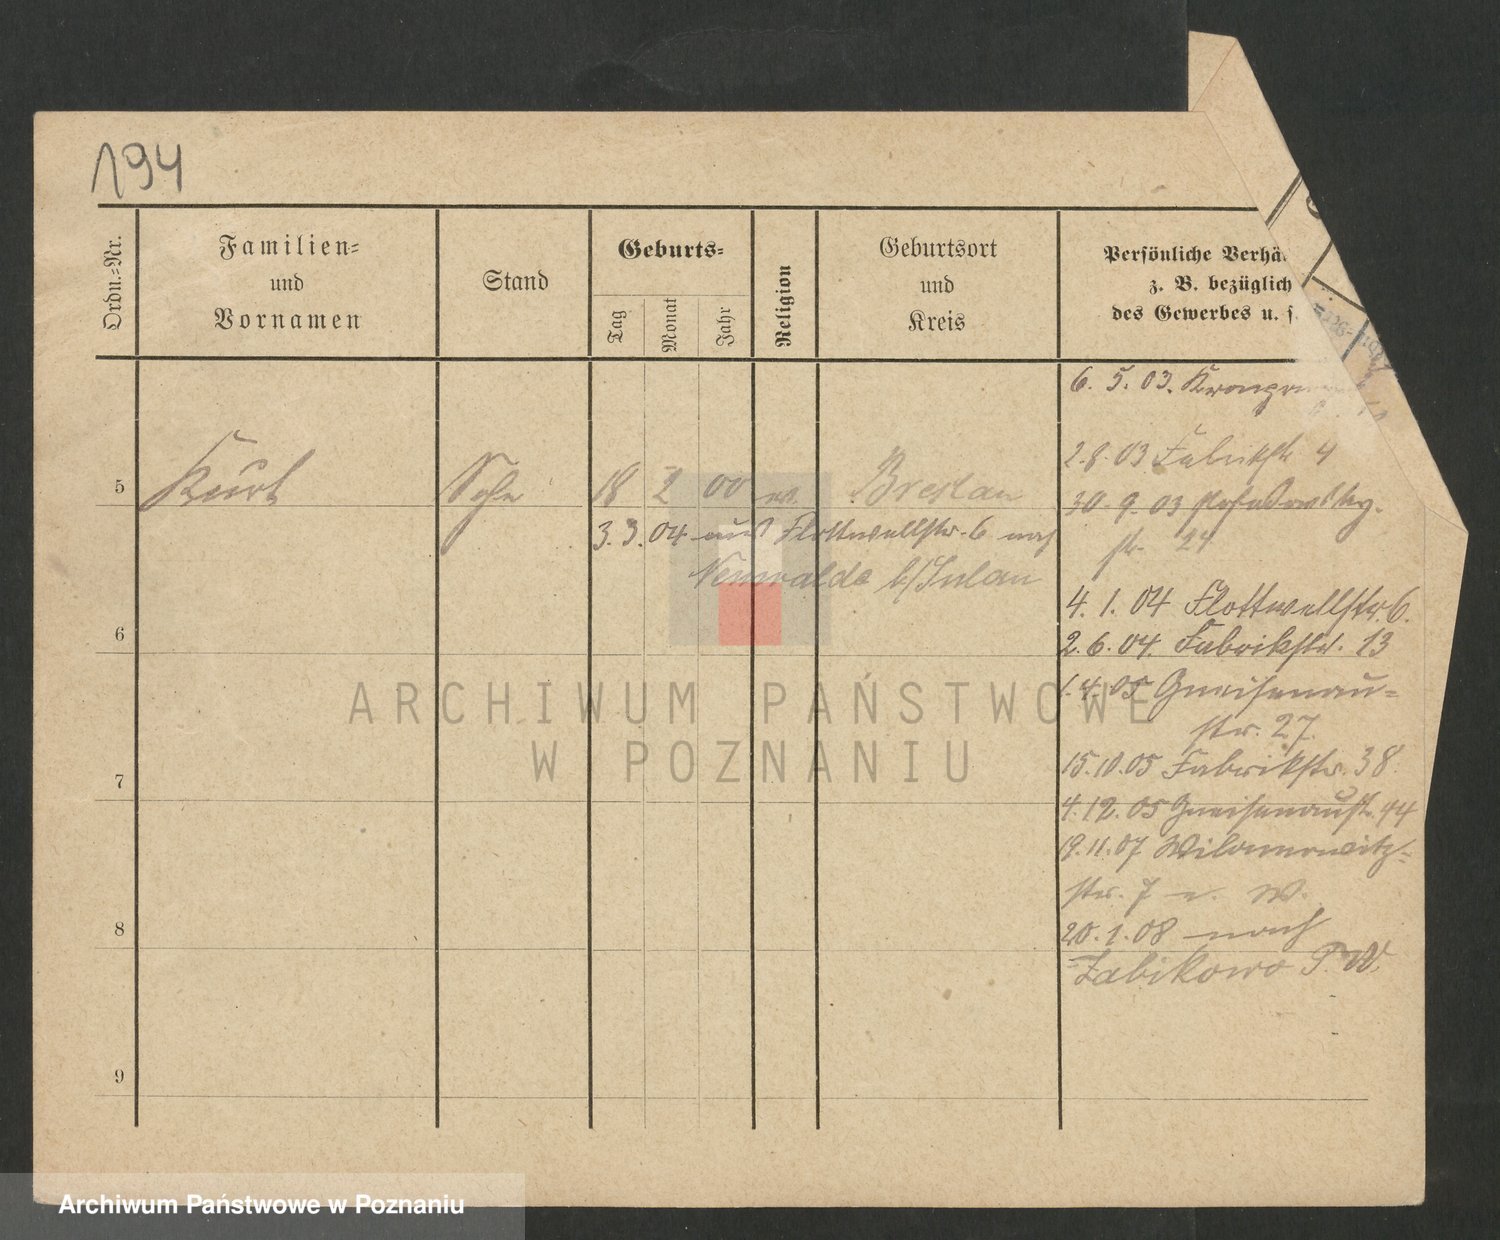 194
Ordn.-Nr.
Familien-
und
Vornamen
Stand
Geburts-
Tag
Monat
Jahr
Religion
Geburtsort
und
Kreis
Persönliche Verhä
z. B. bezüglich
des Gewerbes u. s.
6. 5. 03.
5 Kurt Sohn 18 2 00 ev. Breslau
3. 3. 04 aus Flottwellstr. 6 nach
b/Sulau
2. 8. 03 Fabrikstr 4
30. 9. 03
str. 24
4. 1. 04 Flottwellstr. 6.
6
2. 6. 04. Fabrikstr. 13
1. 4. 05 Gneisenau-
str. 27.
7
15. 10. 05 Fabrikstr. 38
4. 12. 05 Gneisenaustr. 44
19. 11. 07 Wilamowitz-
str. 7 W.
8
20. 1. 08 nach
Zabikowo P. W.
9
ARCHIWUM PAŃSTWOWE
W POZNANIU
Archiwum Państwowe w Poznaniu